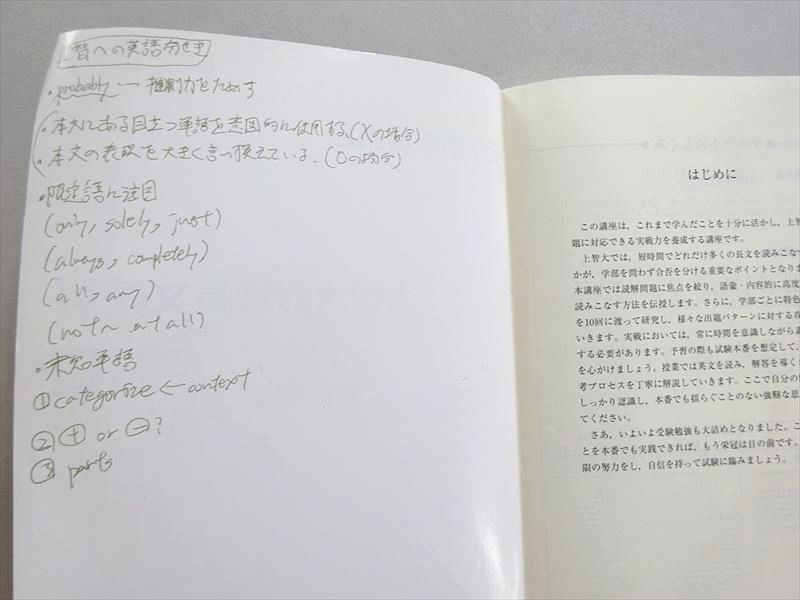 上智への英語分せき
・probably ー 推測力をためす
・本文にある目立つ単語を意図的に使用する。(×の場合)
・本文の表現を大きく言い換えている。(○の場合)
・限定語に注目
(only, solely, just)
(always, completely)
(all, any)
(not ~ at all)
・未知単語
① categorize ← context
② ⊕ or ⊖?
③ parts
テキストのしくみ
はじめに
この講座は、これまで学んだことを十分に活かし、上智
題に対応できる実戦力を養成する講座です。
上智大では、短時間でどれだけ多くの長文を読みこなす
かが、学部を問わず合否を分ける重要なポイントとなりま
本講座では読解問題に焦点を絞り、語彙・内容的に高度
読みこなす方法を伝授します。さらに、学部ごとに特色
を10回に渡って研究し、様々な出題パターンに対する攻
いきます。実戦においては、常に時間を意識しながら素
する必要があります。予習の際も試験本番を想定して、
を心がけましょう。授業では英文を読み、解答を導く
考プロセスを丁寧に解説していきます。ここで自分の
しっかり認識し、本番でも揺らぐことのない強靭な思
てください。
さあ、いよいよ受験勉強も大詰めとなりました。こ
とを本番でも実践できれば、もう栄冠は目の前です。
限の努力をし、自信を持って試験に臨みましょう。